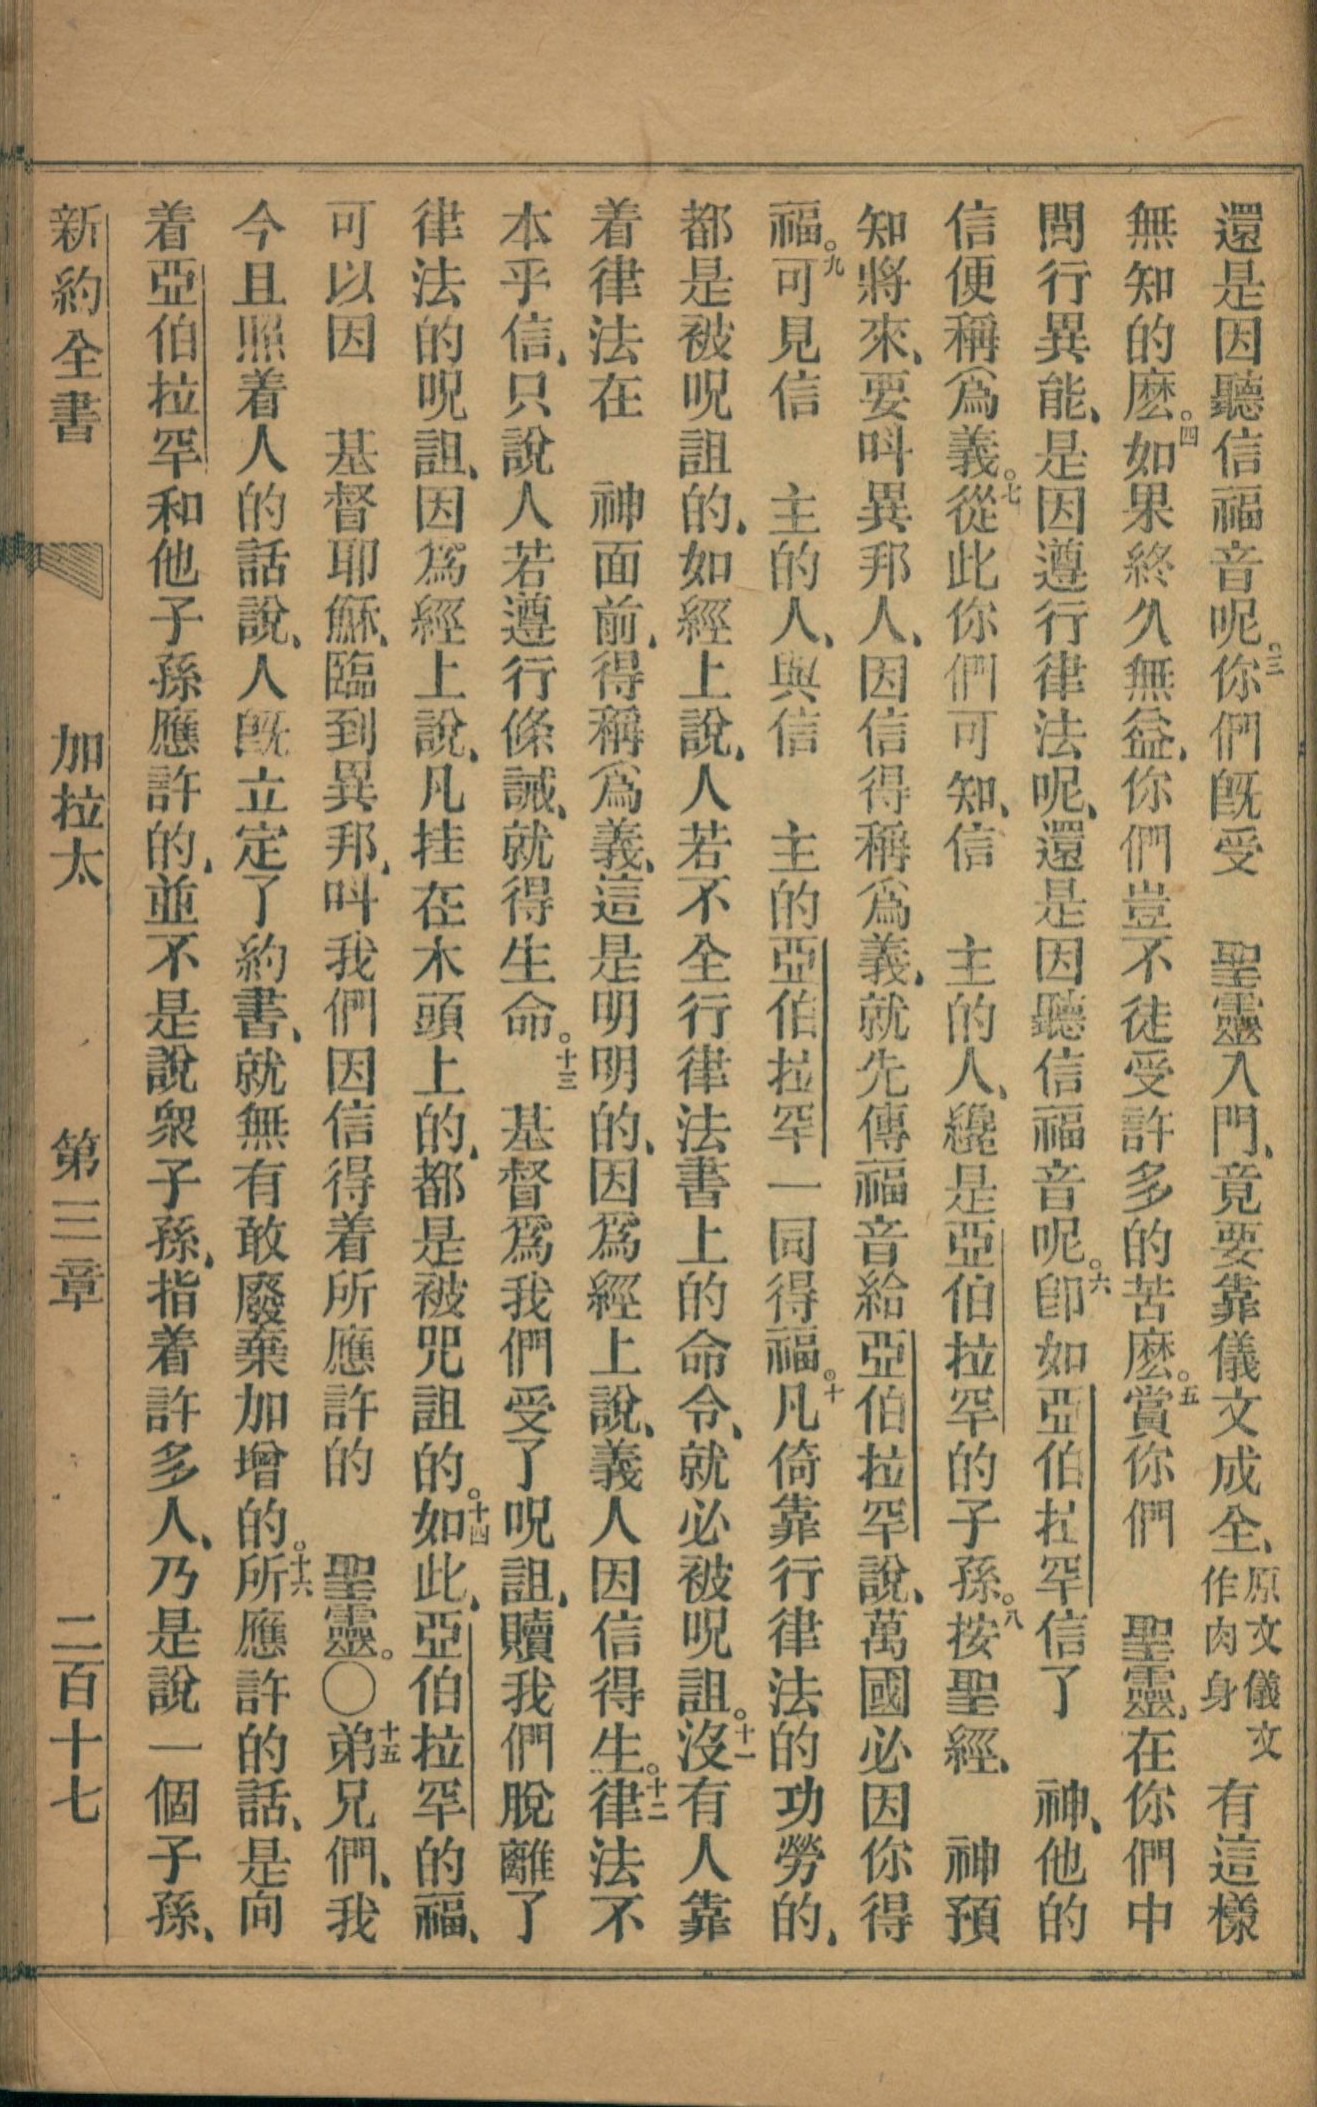 還是因聽信福音呢。三你們旣受　聖靈入門、竟要靠儀文成全、原文儀文作肉身有這樣
無知的麽。四如果終久無益、你們豈不徒受許多的苦麽。五賞你們　聖靈、在你們中
間行異能、是因遵行律法呢、還是因聽信福音呢。六卽如亞伯拉罕信了　神、他的
信便稱爲義。七從此你們可知、信　主的人、纔是亞伯拉罕的子孫。八按聖經、　神預
知將來、要叫異邦人、因信得稱爲義、就先傳福音給亞伯拉罕說、萬國必因你得
福。九可見信　主的人、與信　主的亞伯拉罕一同得福。十凡倚靠行律法的功勞的、
都是被呪詛的、如經上說、人若不全行律法書上的命令、就必被呪詛。十一沒有人靠
着律法在　神面前、得稱爲義、這是明明的、因爲經上說、義人因信得生。十二律法不
本乎信、只說人若遵行條誡、就得生命。十三　基督爲我們受了呪詛、贖我們脫離了
律法的呪詛、因爲經上說、凡挂在木頭上的、都是被咒詛的。十四如此、亞伯拉罕的福、
可以因　基督耶穌、臨到異邦、叫我們因信得着所應許的　聖靈。〇十五弟兄們、我
今且照着人的話說、人旣立定了約書、就無有敢廢棄加增的。十六所應許的話、是向
着亞伯拉罕和他子孫應許的、並不是說衆子孫、指着許多人、乃是說一個子孫、
新約全書　加拉太　第三章　二百十七